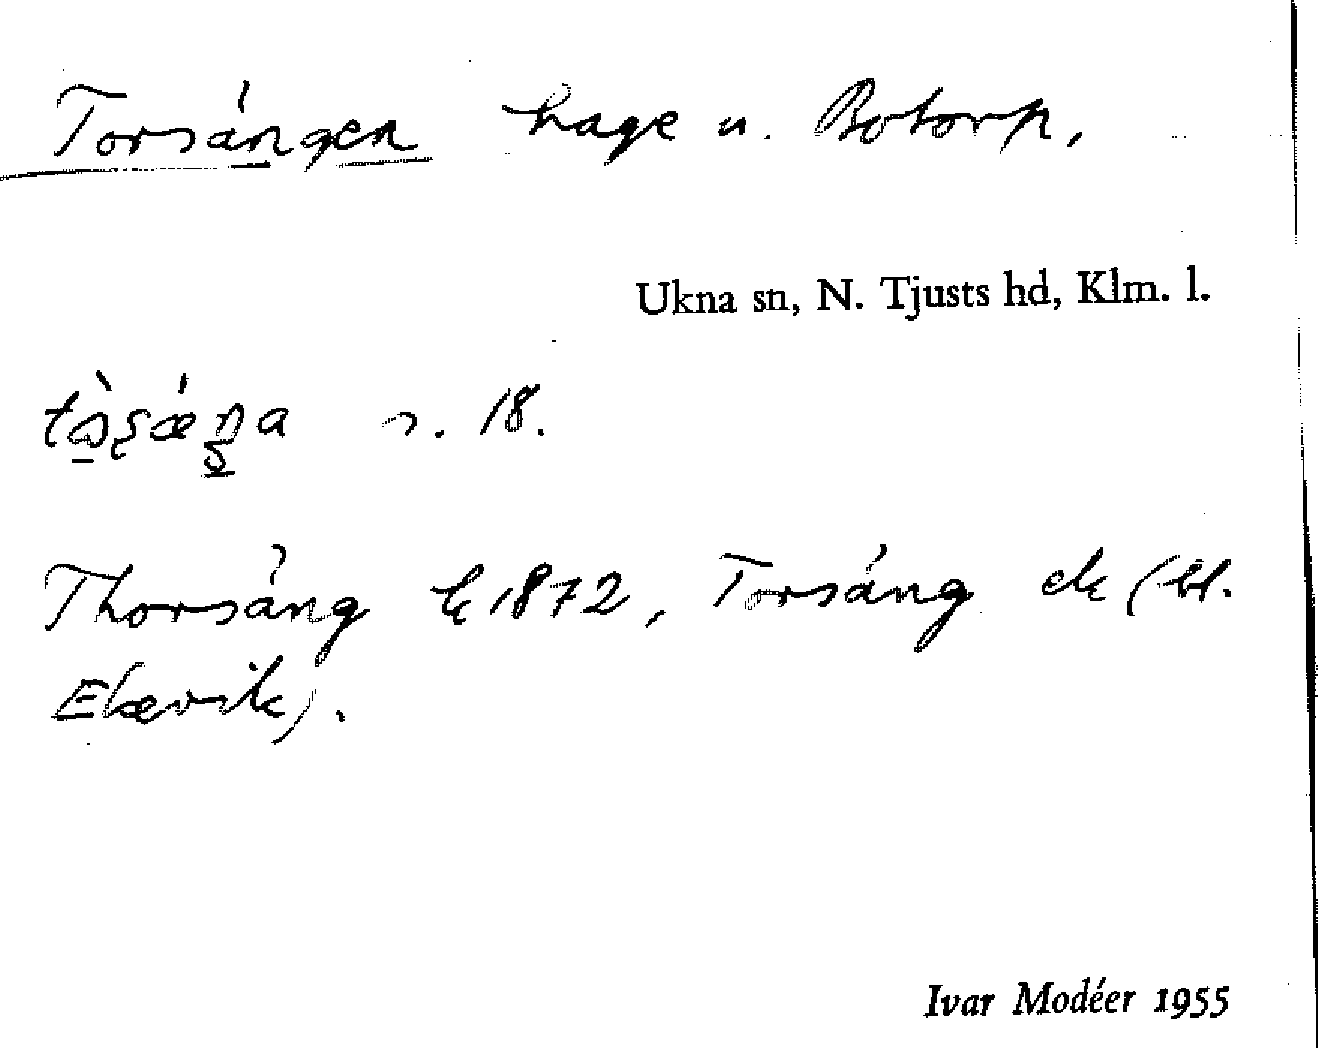 Torsängen hage u. Botorp,
Ukna sn, N. Tjusts hd, Klm. l.
tòṣǽŋa r. 18.
Thorsäng k 1872, Torsäng ek (bl.
Ekevik).
Ivar Modéer 1955